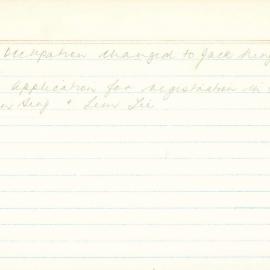 Occupation changed to Jack
Application for registration in
Sing & Lim Lie